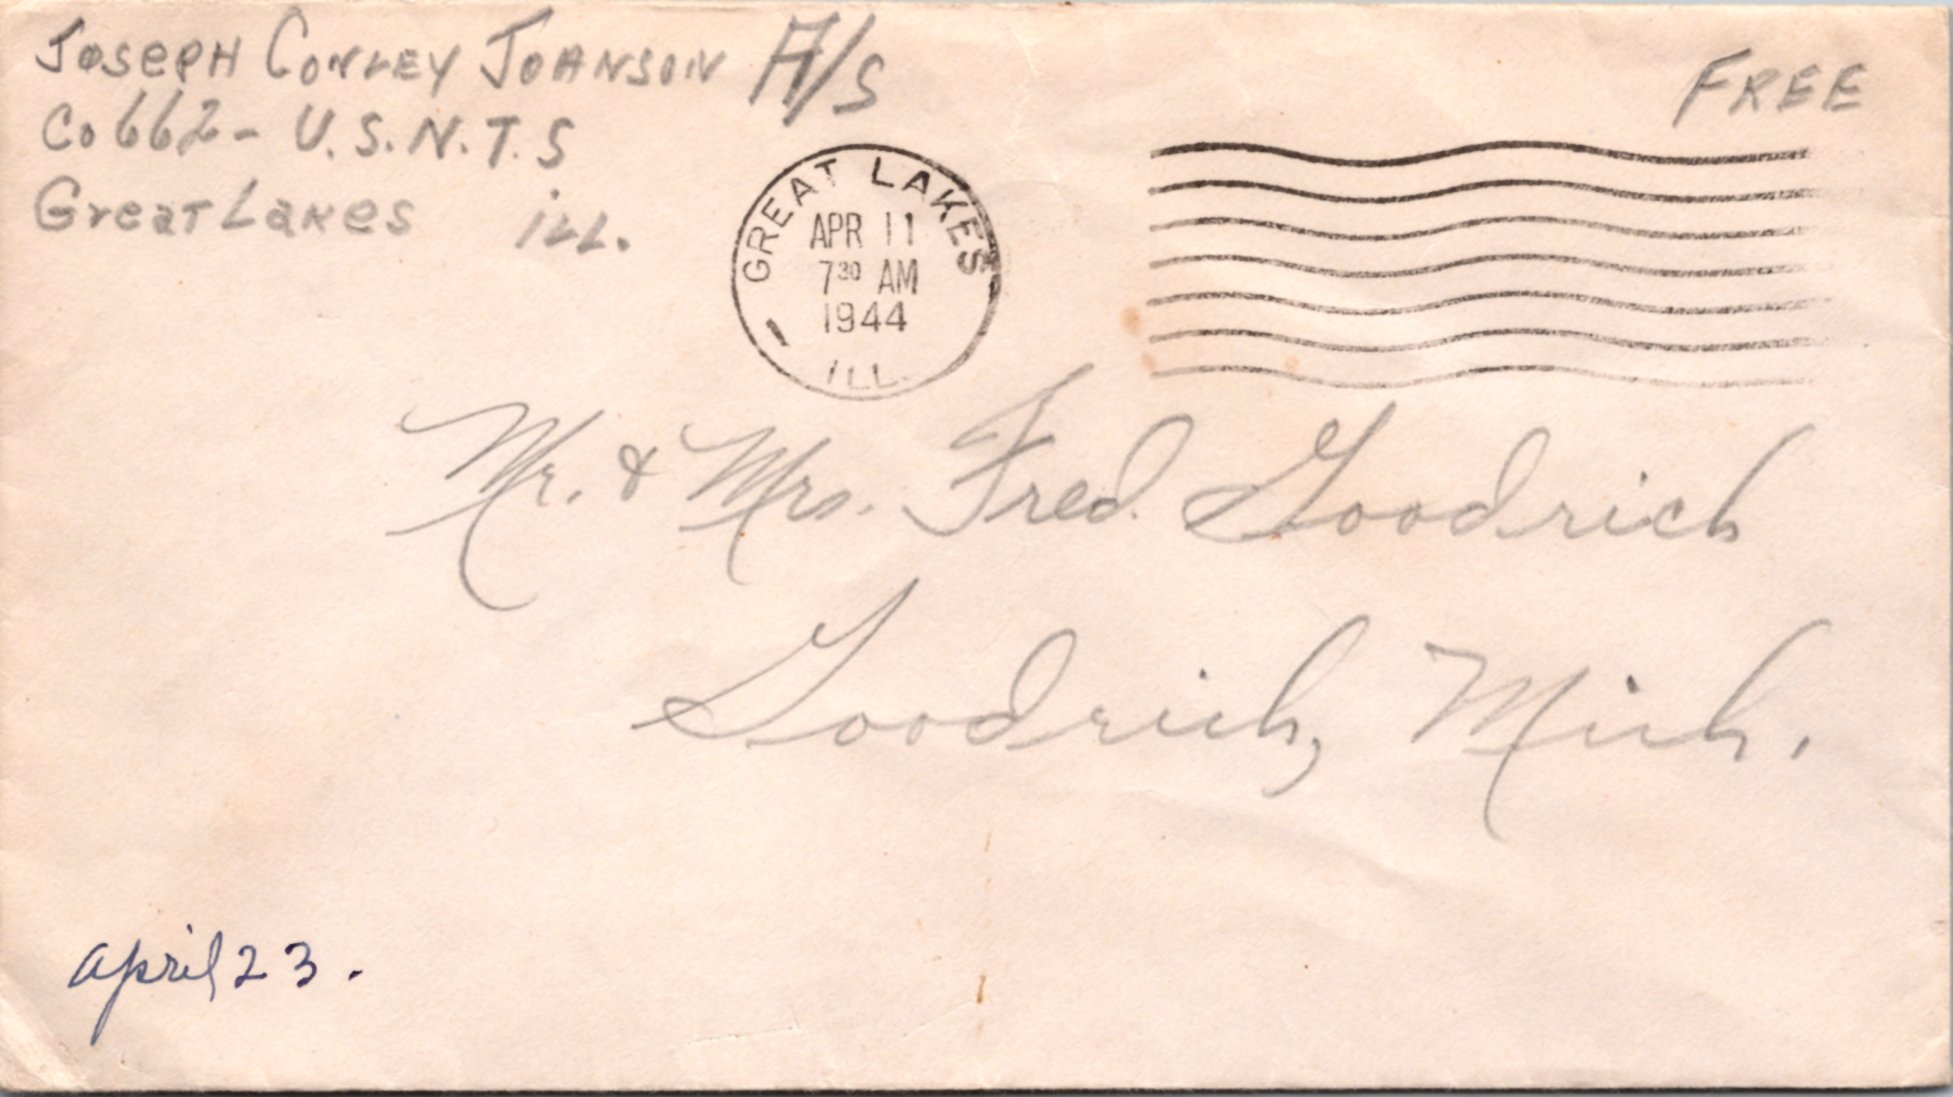 Joseph Conley Johnson A/S
Co 662 - U.S.N.T.S
Great Lakes ILL.
FREE
GREAT LAKES
APR 11
7 30 AM
1944
ILL.
Mr. & Mrs. Fred Goodrich
Goodrich, Mich.
april 23.